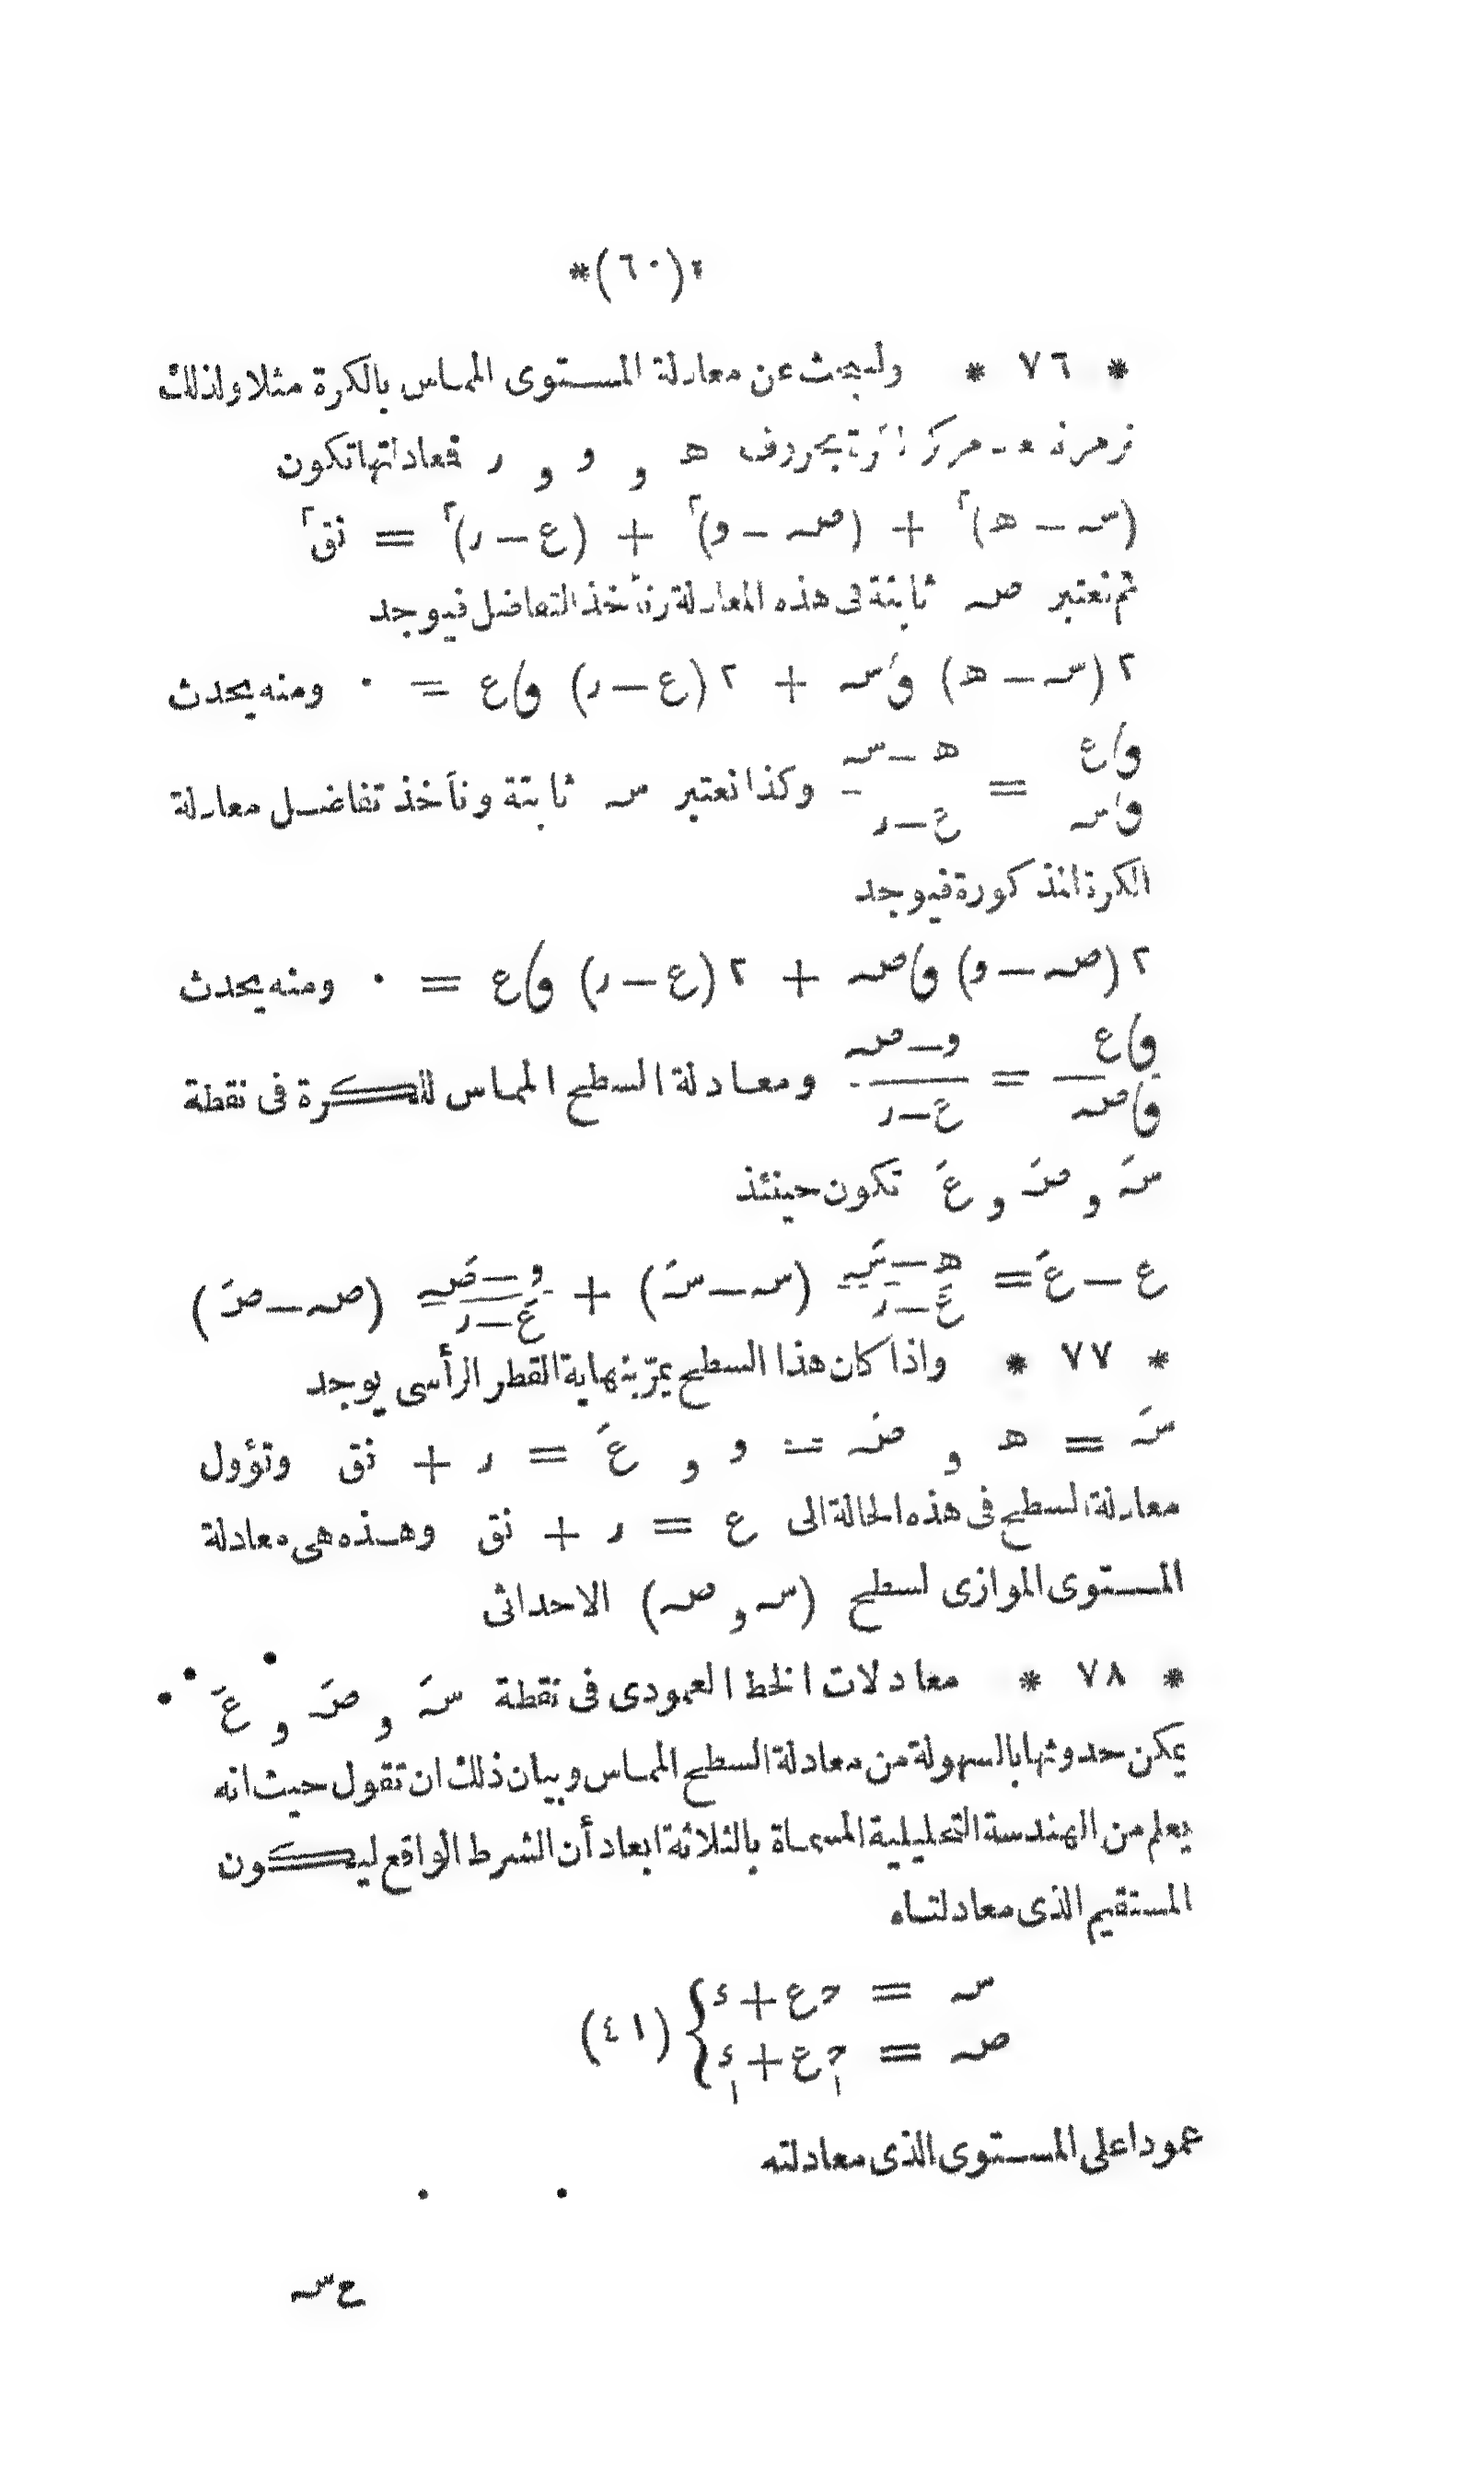 *(٦٠)*
* ٧٦ * ولنبحث عن معادلة المستوى المماس بالكرة مثلا ولذلك
نرمز لمركز الكرة بحروف ه و و و ر فمعادلتها تكون
(سه — ه)٢ + (صه — و)٢ + (ع — ر)٢ = نق٢
ثم نعتبر صه ثابتة فى هذه المعادلة ونأخذ التفاضل فيوجد
٢ (سه — ه) ﻭاسه + ٢ (ع — ر) ﻭاع = ٠ ومنه يحدث
ﻭاع / ﻭاسه = ه — سه / ع — ر وكذا نعتبر سه ثابتة ونأخذ تفاضل معادلة
الكرة المذكورة فيوجد
٢ (صه — و) ﻭاصه + ٢ (ع — ر) ﻭاع = ٠ ومنه يحدث
ﻭاع / ﻭاصه = و — صه / ع — ر ومعادلة السطح المماس للكرة فى نقطة
سَه و صَه و عَ تكون حينئذ
ع — عَ = ه — سَه / عَ — ر (سه — سَه) + و — صَه / عَ — ر (صه — صَه)
* ٧٧ * واذا كان هذا السطح يمرّ بنهاية القطر الرأسى يوجد
سَه = ه و صَه = و و عَ = ر + نق وتؤول
معادلة السطح فى هذه الحالة الى ع = ر + نق وهذه هى معادلة
المستوى الموازى لسطح (سه و صه) الاحداثى
* ٧٨ * معادلات الخط العمودى فى نقطة سَه و صَه و عَ
يمكن حدوثها بالسهولة من معادلة السطح المماس وبيان ذلك ان تقول حيث انه
يعلم من الهندسة التحليلية المسماة بالثلاثة ابعاد أن الشرط الواقع ليكون
المستقيم الذى معادلتاه
سه = حع + ء
صه = ح١ع + ء١ } (٤١)
عمودا على المستوى الذى معادلته
ح سه